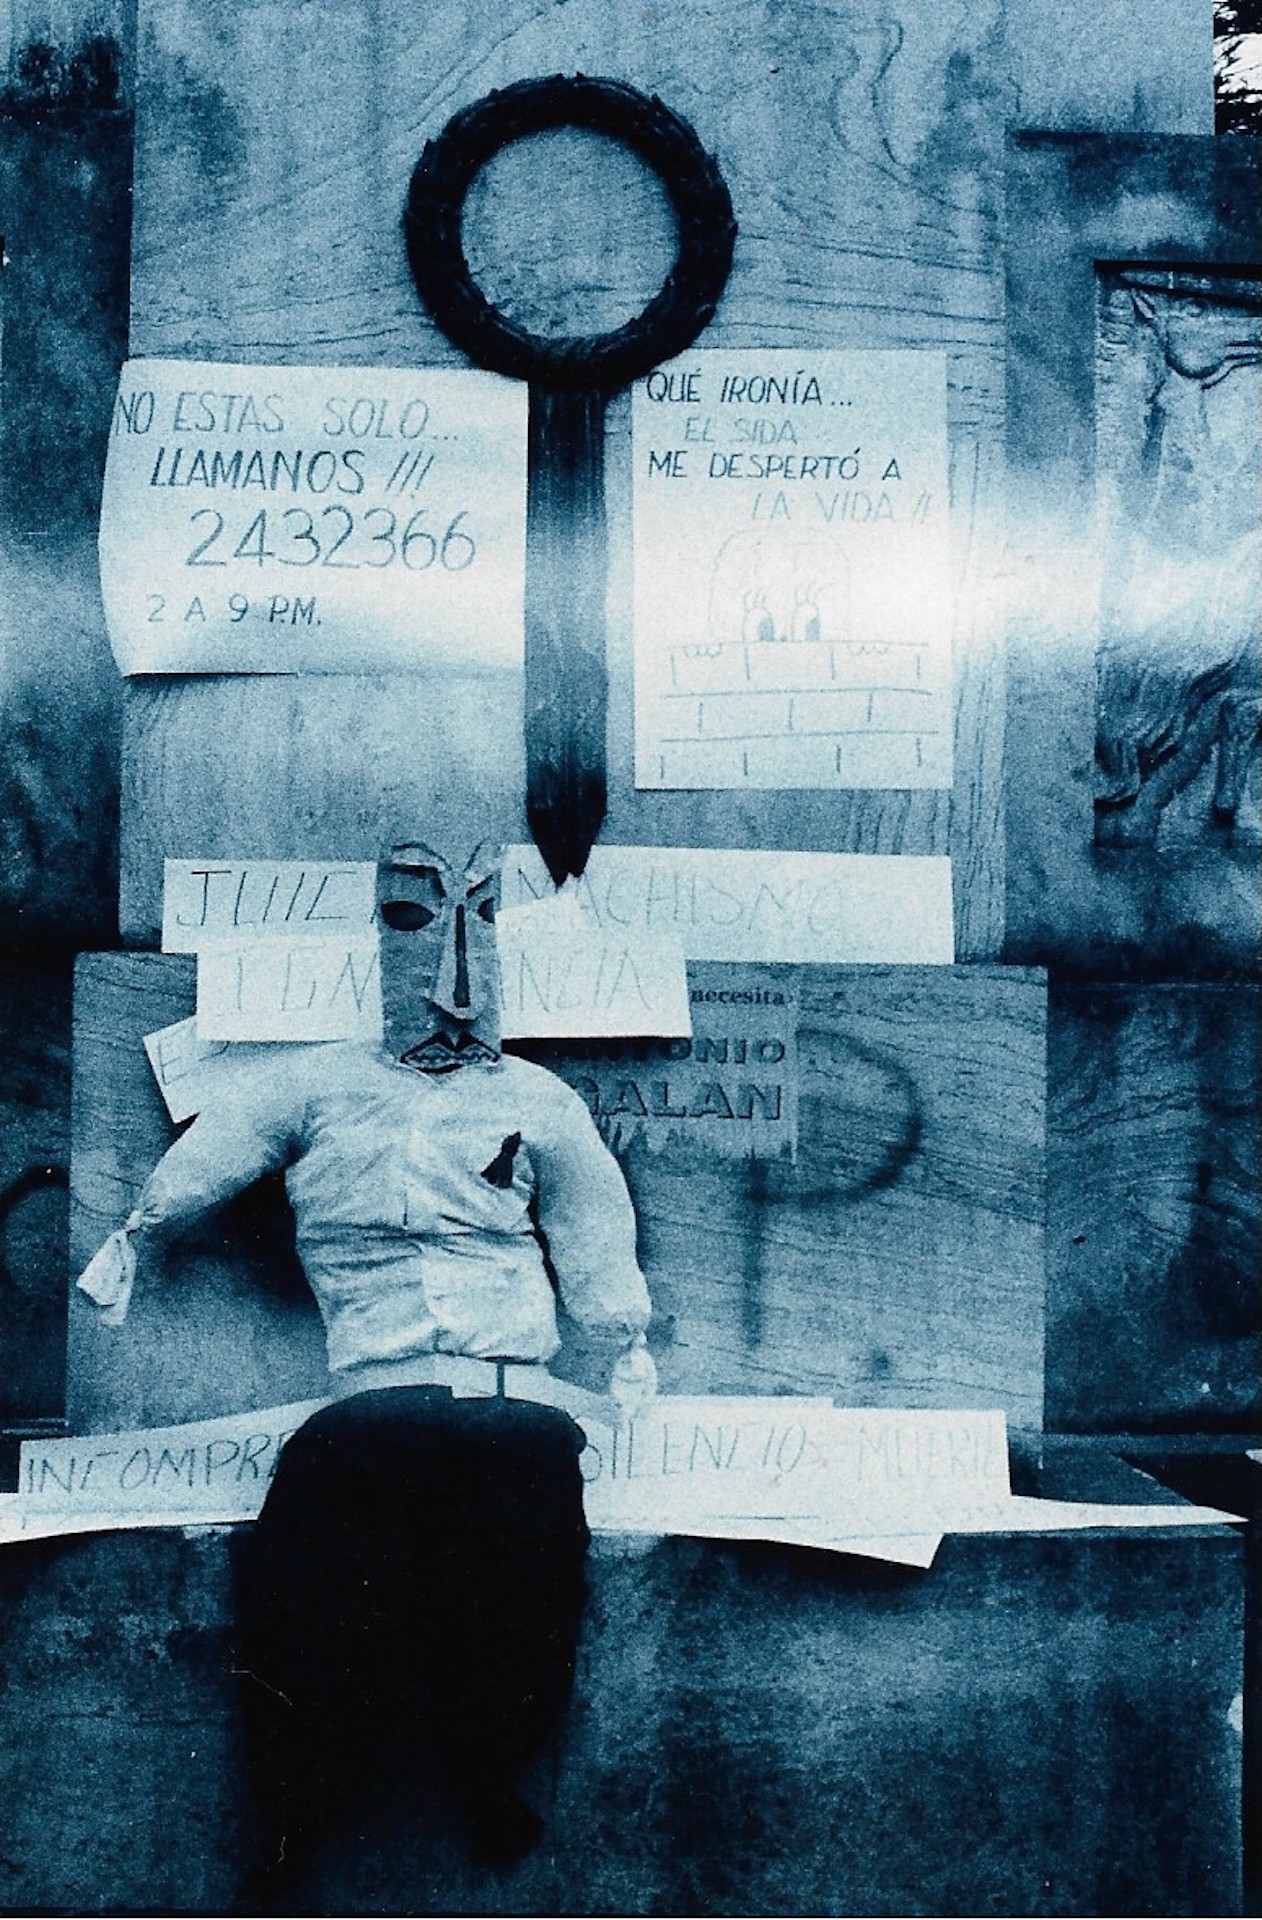 NO ESTAS SOLO...
LLAMANOS !!!
2432366
2 A 9 P.M.
QUÉ IRONÍA...
EL SIDA
ME DESPERTÓ A
LA VIDA !!
MACHISMO
necesita
ANTONIO
GALAN
INCOMPRE
SILENCIO = MUERTE